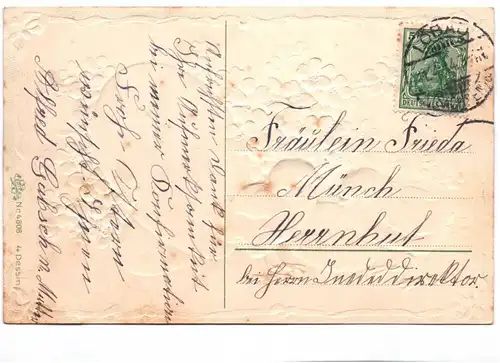 Herzlichsten Dank für
Ihre Aufmerksamkeit
zu meiner Konfirmation
Frohe Ostern
wünscht Ihnen
Alfred u. Mutter
Nr. 4808 4 Dessins
LÖBAU
5
DEUTSCHES
Fräulein Frieda
Münch
Herrnhut
bei Herrn